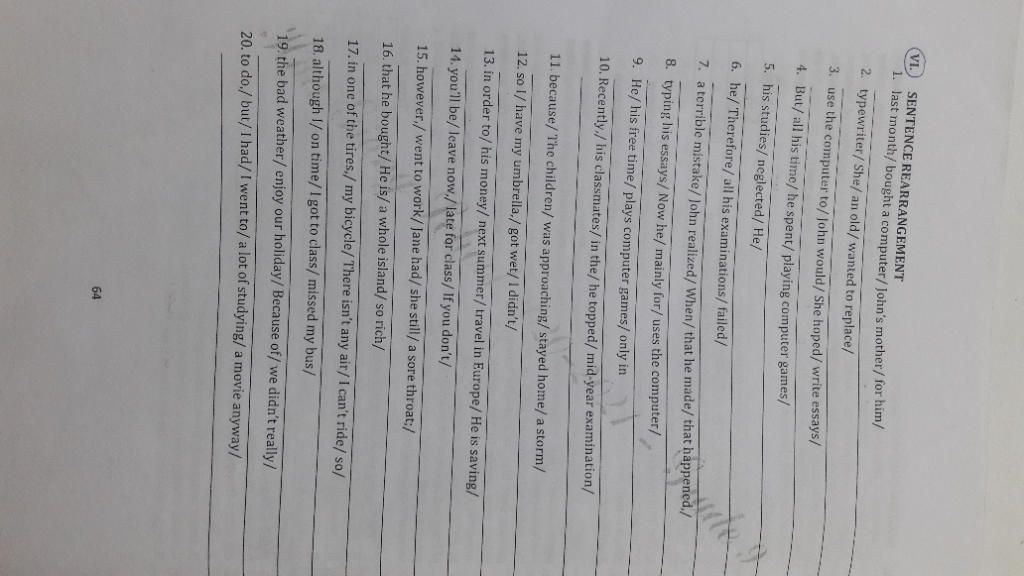 VI. SENTENCE REARRANGEMENT
1. last month/ bought a computer/ John's mother/ for him/
2. typewriter/ She/ an old/ wanted to replace/
3. use the computer to/ John would/ She hoped/ write essays/
4. But/ all his time/ he spent/ playing computer games/
5. his studies/ neglected/ He/
6. he/ Therefore/ all his examinations/ failed/
7. a terrible mistake/ John realized/ When/ that he made/ that happened,/
8. typing his essays/ Now he/ mainly for/ uses the computer/
9. He/ his free time/ plays computer games/ only in
10. Recently,/ his classmates/ in the/ he topped/ mid-year examination/
11. because/ The children/ was approaching/ stayed home/ a storm/
12. so I/ have my umbrella,/ got wet/ I didn't/
13. in order to/ his money/ next summer/ travel in Europe/ He is saving/
14. you'll be/ leave now,/ late for class/ If you don't/
15. however,/ went to work/ Jane had/ she still/ a sore throat;/
16. that he bought/ He is/ a whole island/ so rich/
17. in one of the tires,/ my bicycle/ There isn't any air/ I can't ride/ so/
18. although I/ on time/ I got to class/ missed my bus/
19. the bad weather/ enjoy our holiday/ Because of/ we didn't really/
20. to do,/ but/ I had/ I went to/ a lot of studying/ a movie anyway/
64